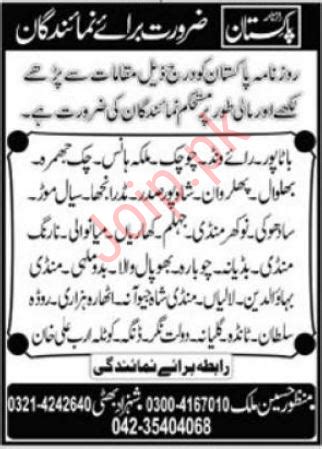 روزنامہ پاکستان ضرورت برائے نمائندگان
روزنامہ پاکستان کو درج ذیل مقامات سے پڑھے
لکھے اور مالی طور پر مستحکم نمائندگان کی ضرورت ہے۔
باٹا پور۔ رائے ونڈ۔ چوچک۔ ملکہ ہانس۔ چک جھمرہ۔
بھلوال۔ پھلروان۔ شاہ پور صدر۔ مڈھ رانجھا۔ سیال موڑ۔
سادھوکی۔ نوکھر منڈی۔ جہلم۔ کھاریاں۔ میانوالی۔ نارنگ
منڈی۔ بڈیانہ۔ چوبارہ۔ بھوپال والا۔ بدوملہی۔ منڈی
بہاؤالدین۔ لالیاں۔ منڈی شاہ جیوانہ۔ اٹھارہ ہزاری۔ روڈہ
سلطان۔ ٹانڈہ۔ گلیانہ۔ دولت نگر۔ ڈنگہ۔ کوٹلہ ارب علی خان
رابطہ برائے نمائندگی
منظور حسین ملک 0300-4167010 شہزاد بھٹی 0321-4242640
042-35404068
Joip.pk